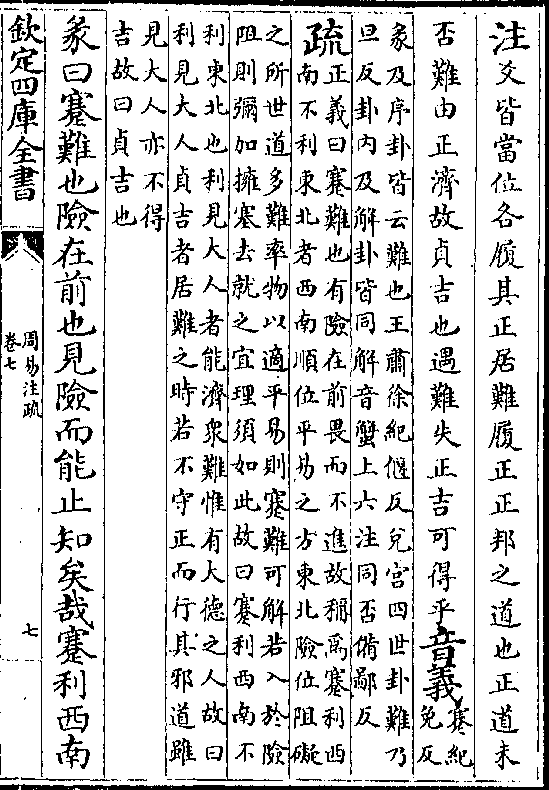 注爻皆當位各履其正居難履正正邦之道也正道未
否難由正濟故貞吉也遇難失正吉可得乎音義蹇紀
免反
彖及序卦皆云難也王肅徐紀偃反兌宮四世卦難乃
旦反卦内及解卦皆同解音蟹上六注同否備鄙反
疏正義曰蹇難也有險在前畏而不進故稱爲蹇利西
南不利東北者西南順位平易之方東北險位阻礙
之所世道多難率物以適平易則蹇難可解若入於險
阻則彌加擁塞去就之宜理須如此故曰蹇利西南不
利東北也利見大人者能濟衆難惟有大德之人故曰
利見大人貞吉者居難之時若不守正而行其邪道雖
見大人亦不得
吉故曰貞吉也
彖曰蹇難也險在前也見險而能止知矣哉蹇利西南
欽定四庫全書
周易注疏
卷七
七